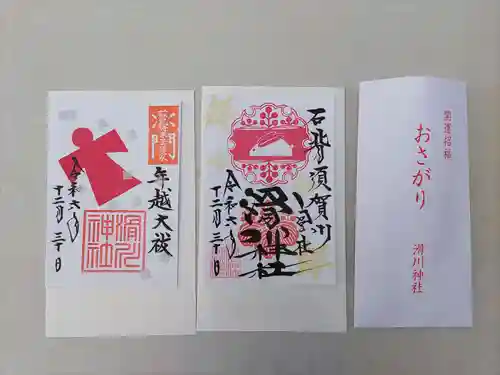 年越大祓
令和六年
十二月三十日
滑川
神社
石背須賀川
滑川神社
令和六年
十二月三十日
開運招福
おさがり
滑川神社